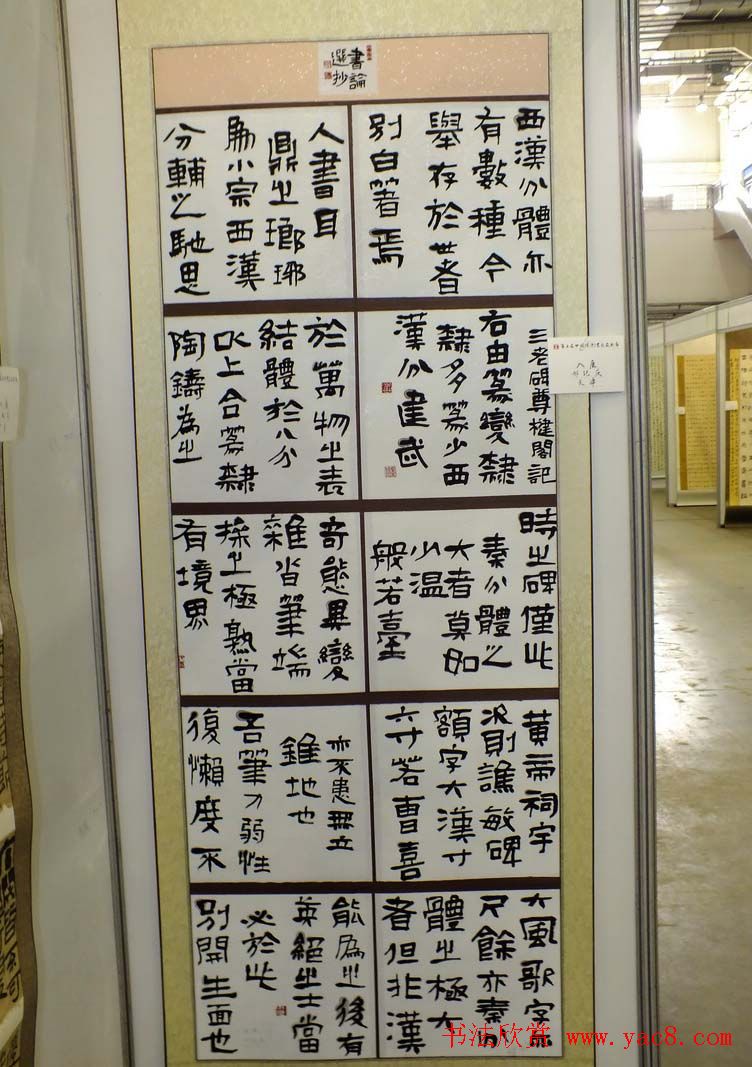 書論
選抄
西漢分體亦
有數種今
舉存於世者
別白箸焉
三老碑尊楗閣記
右由篆變隸
隸多篆少西
漢分建武
時之碑僅此
秦分體之
大者莫如
少溫
般若臺
黃帝祠宇
次則譙敏碑
額字大漢寸
六寸若曹喜
大風歌字亦
尺餘亦秦分
體之極大
者但非漢
人書耳
鼎之瑯琊
為小宗西漢
分輔之馳思
於萬物之表
結體於八分
以上合篆隸
陶鑄為之
奇態異變
雜沓筆端
操之極熟當
有境界
亦不患無立
錐地也
吾筆力弱性
復懶度不
能為之後有
英絕之士當
必於此
別開生面也
入展
书法欣赏 www.yac8.com